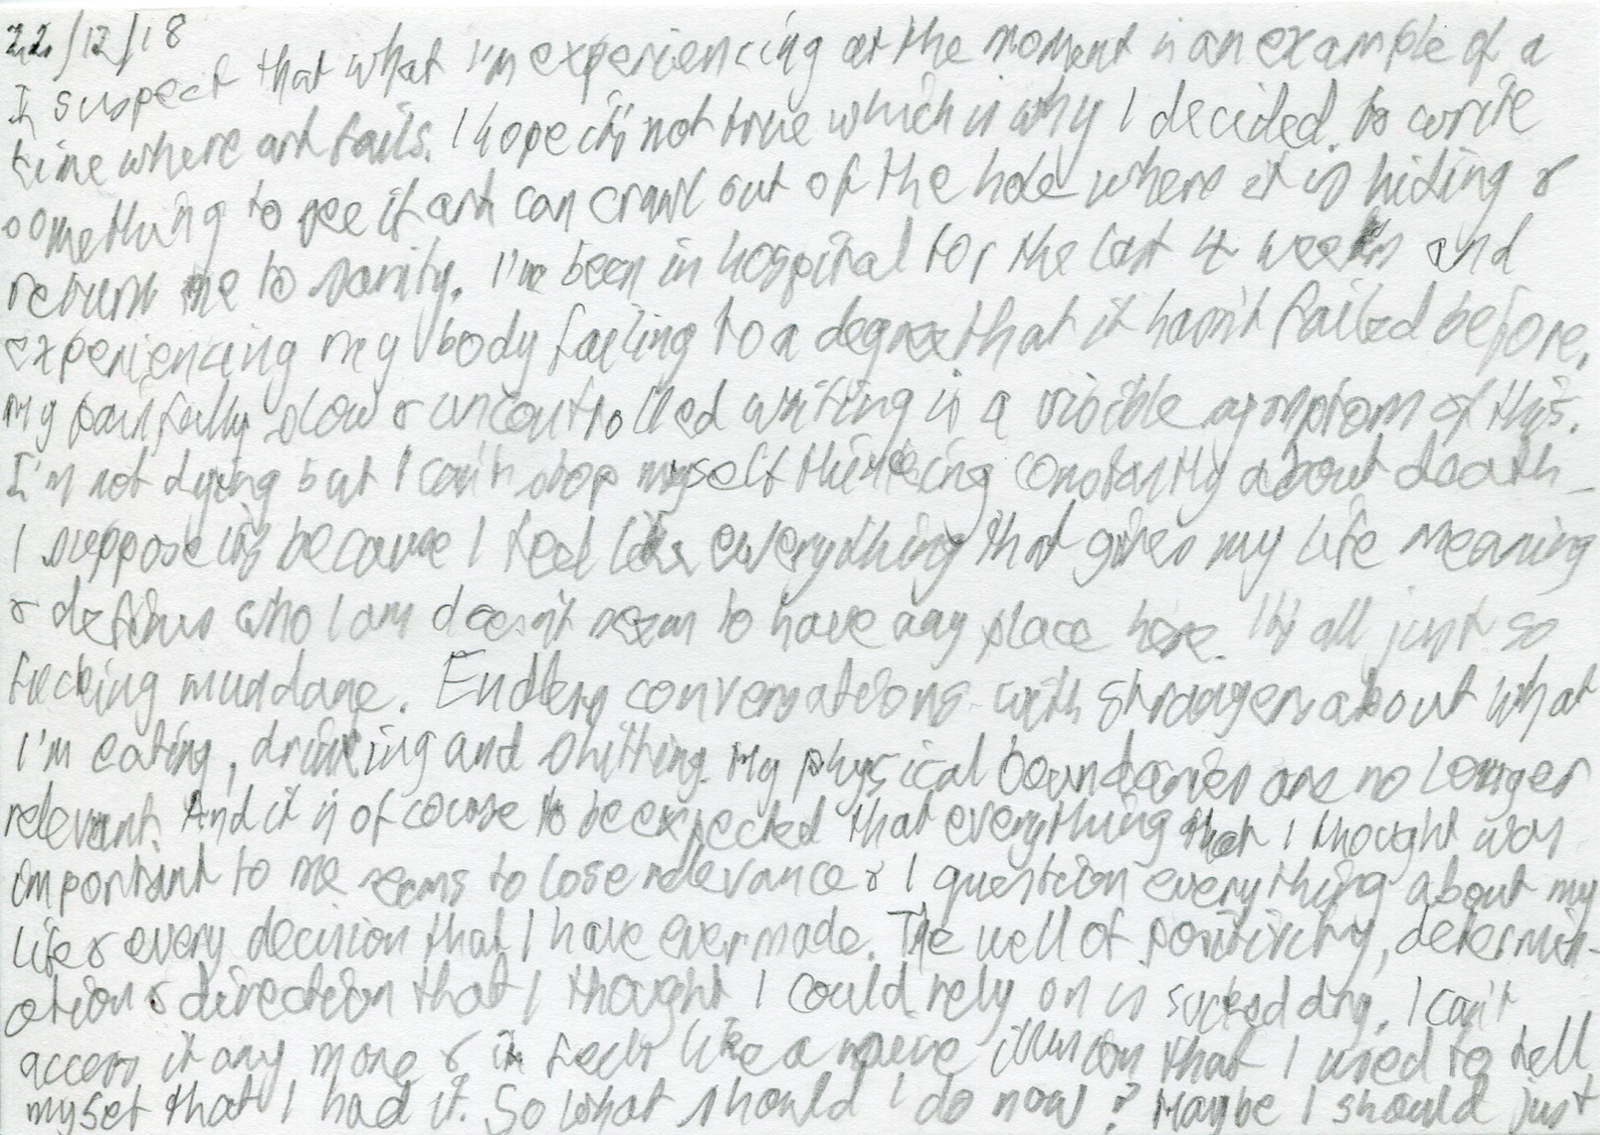 22/12/18
I suspect that what I'm experiencing at the moment is an example of a
time where art fails. I hope it's not true which is why I decided to write
something to see if art can crawl out of the hole where it is hiding &
return me to sanity. I've been in hospital for the last 4 weeks and
experiencing my body failing to a degree that it hasn't failed before,
my painfully slow & uncontrolled writing is a visible symptom of this.
I'm not dying but I can't stop myself thinking constantly about death –
I suppose it's because I feel like everything that gives my life meaning
& defines who I am doesn't seem to have any place here. It's all just so
fucking mundane. Endless conversations with strangers about what
I'm eating, drinking and shitting. My physical boundaries are no longer
relevant. And it is of course to be expected that everything that I thought was
important to me seems to lose relevance & I question everything about my
life & every decision that I have ever made. The well of positivity, determin-
ation & direction that I thought I could rely on is sucked dry. I can't
access it any more & it feels like a naive illusion that I used to tell
myself that I had it. So what should I do now? Maybe I should just